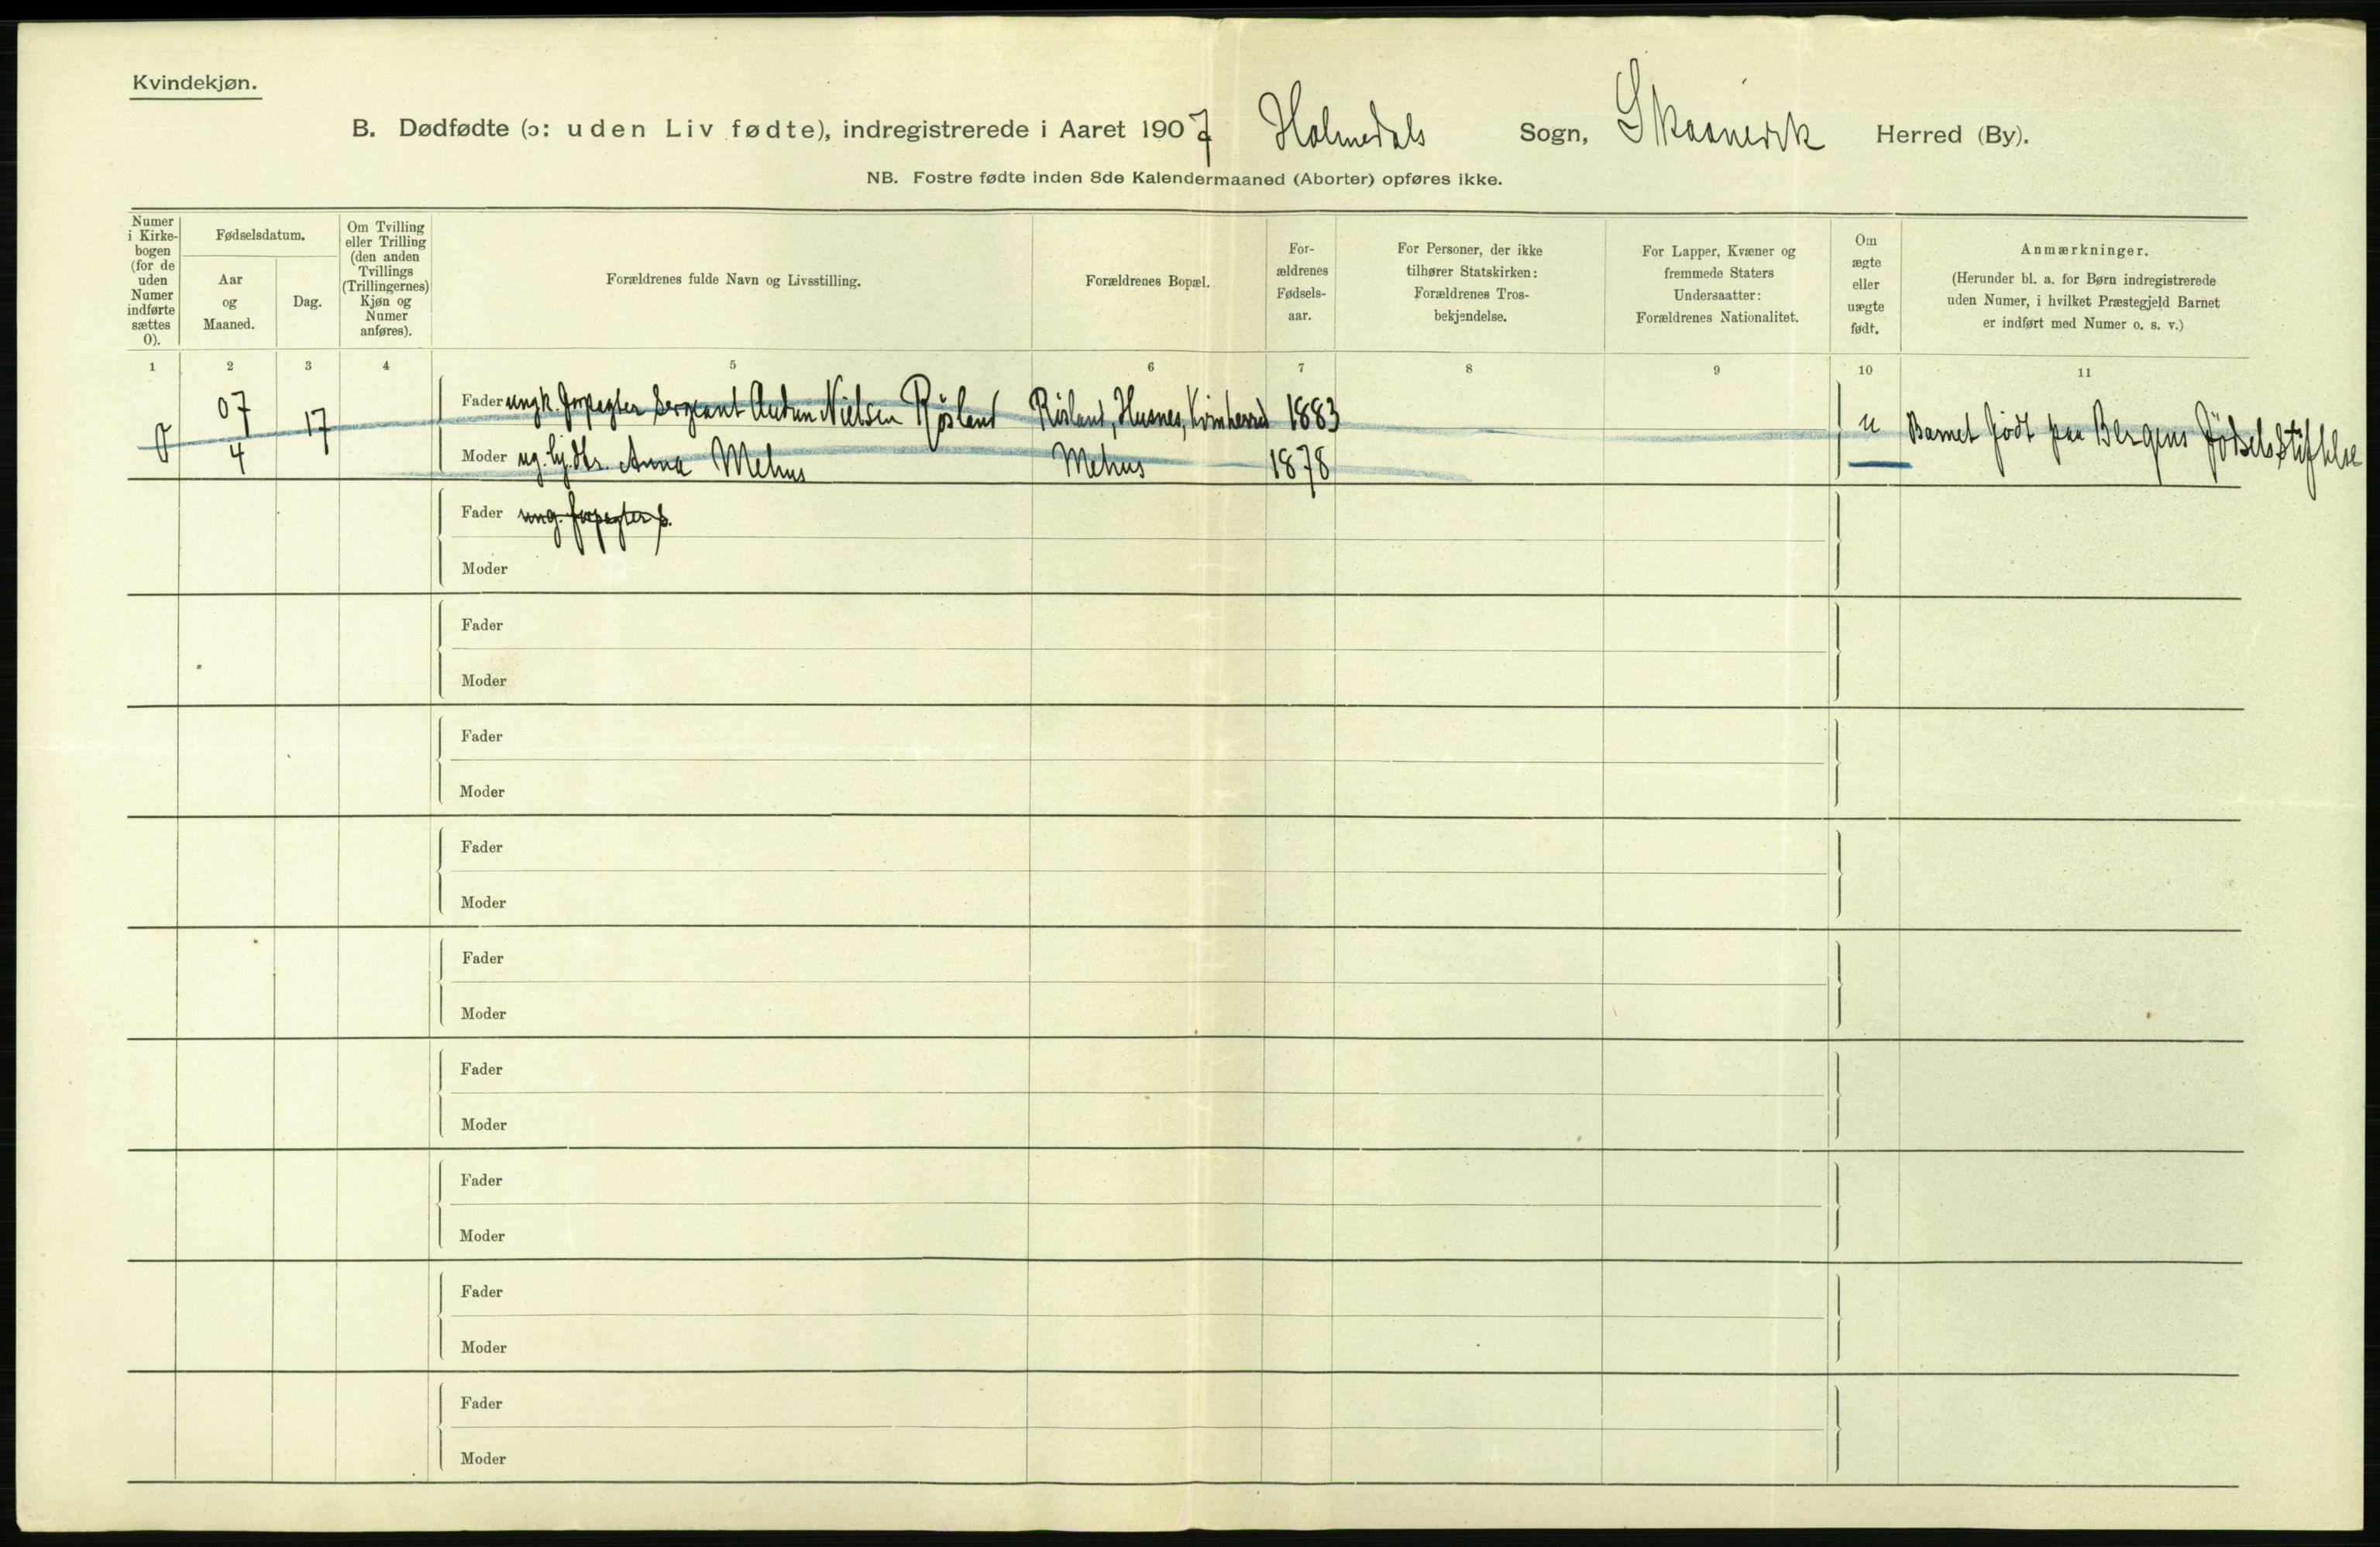 Kvindekjøn.
B. Dødfødte (ɔ: uden Liv fødte), indregistrerede i Aaret 1907 Holmedals Sogn, Skaanevik Herred (By).
NB. Fostre fødte inden 8de Kalendermaaned (Aborter) opføres ikke.
Numer
i Kirke-
bogen
(for de
uden
Numer
indførte
sættes
0).
Fødselsdatum.
Aar
og
Maaned.
Dag.
Om Tvilling
eller Trilling
(den anden
Tvillings
(Trillingernes)
Kjøn og
Numer
anføres).
Forældrenes fulde Navn og Livsstilling.
Forældrenes Bopæl.
For-
ældrenes
Fødsels-
aar.
For Personer, der ikke
tilhører Statskirken:
Forældrenes Tros-
bekjendelse.
For Lapper, Kvæner og
fremmede Staters
Undersaatter:
Forældrenes Nationalitet.
Om
ægte
eller
uægte
født.
Anmærkninger.
(Herunder bl. a. for Børn indregistrerede
uden Numer, i hvilket Præstegjeld Barnet
er indført med Numer o. s. v.)
1 2 3 4 5 6 7 8 9 10 11
0 07 4 17
Fader ungk. forpagter Sergeant Audun Nielsen Røsland Røsland, Husnes, Kvinherred 1883
u Barnet født paa Bergens Fødselsstiftelse
Moder ug. Anna Mehus Mehus 1878
Fader ung. forpagter s.
Moder
Fader
Moder
Fader
Moder
Fader
Moder
Fader
Moder
Fader
Moder
Fader
Moder
Fader
Moder
Fader
Moder